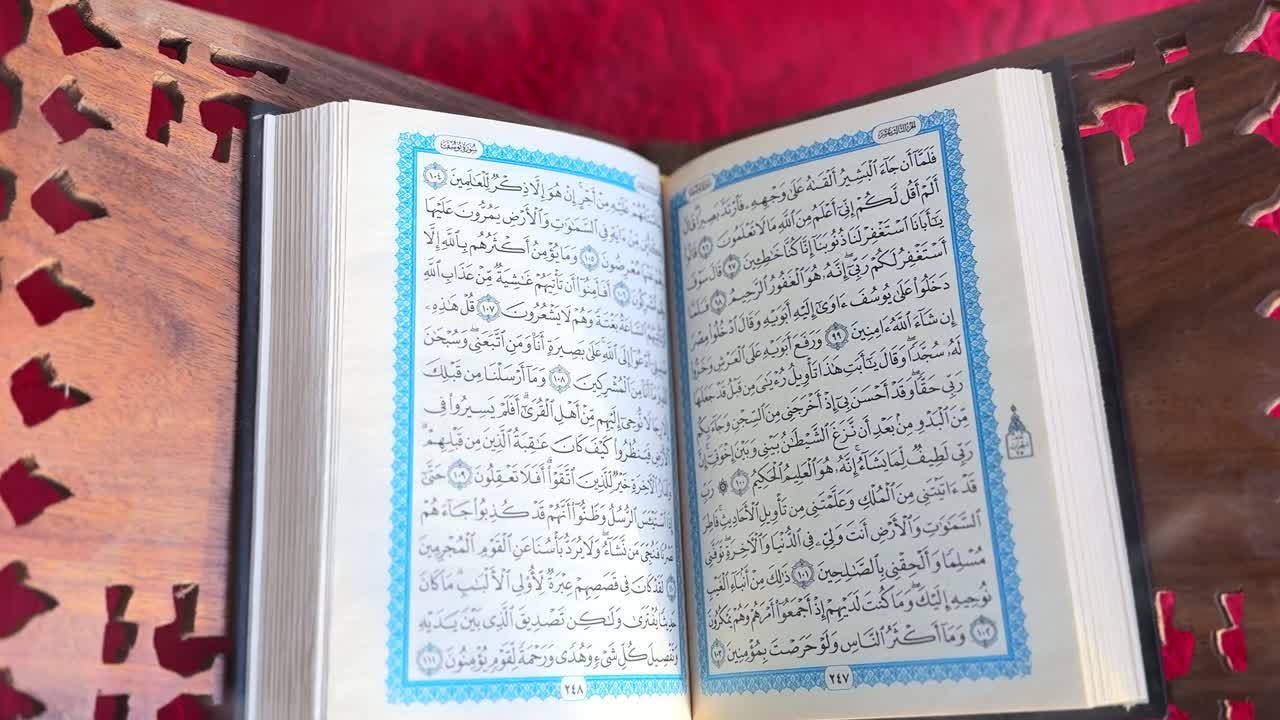 الجزء الثالث عشر
سورة يوسف
فَلَمَّآ أَن جَآءَ ٱلْبَشِيرُ أَلْقَىٰهُ عَلَىٰ وَجْهِهِۦ فَٱرْتَدَّ بَصِيرًا قَالَ
أَلَمْ أَقُل لَّكُمْ إِنِّىٓ أَعْلَمُ مِنَ ٱللَّهِ مَا لَا تَعْلَمُونَ ٩٦ قَالُوا۟
يَـٰٓأَبَانَا ٱسْتَغْفِرْ لَنَا ذُنُوبَنَآ إِنَّا كُنَّا خَـٰطِـِٔينَ ٩٧ قَالَ سَوْفَ
أَسْتَغْفِرُ لَكُمْ رَبِّىٓ إِنَّهُۥ هُوَ ٱلْغَفُورُ ٱلرَّحِيمُ ٩٨ فَلَمَّا
دَخَلُوا۟ عَلَىٰ يُوسُفَ ءَاوَىٰٓ إِلَيْهِ أَبَوَيْهِ وَقَالَ ٱدْخُلُوا۟ مِصْرَ
إِن شَآءَ ٱللَّهُ ءَامِنِينَ ٩٩ وَرَفَعَ أَبَوَيْهِ عَلَى ٱلْعَرْشِ وَخَرُّوا۟
لَهُۥ سُجَّدًا وَقَالَ يَـٰٓأَبَتِ هَـٰذَا تَأْوِيلُ رُءْيَـٰىَ مِن قَبْلُ قَدْ جَعَلَهَا
رَبِّى حَقًّا وَقَدْ أَحْسَنَ بِىٓ إِذْ أَخْرَجَنِى مِنَ ٱلسِّجْنِ وَجَآءَ بِكُم
مِّنَ ٱلْبَدْوِ مِنۢ بَعْدِ أَن نَّزَغَ ٱلشَّيْطَـٰنُ بَيْنِى وَبَيْنَ إِخْوَتِىٓ إِنَّ
رَبِّى لَطِيفٌ لِّمَا يَشَآءُ إِنَّهُۥ هُوَ ٱلْعَلِيمُ ٱلْحَكِيمُ ١٠٠ ۞ رَبِّ
قَدْ ءَاتَيْتَنِى مِنَ ٱلْمُلْكِ وَعَلَّمْتَنِى مِن تَأْوِيلِ ٱلْأَحَادِيثِ فَاطِرَ
ٱلسَّمَـٰوَٰتِ وَٱلْأَرْضِ أَنتَ وَلِىِّۦ فِى ٱلدُّنْيَا وَٱلْـَٔاخِرَةِ تَوَفَّنِى
مُسْلِمًا وَأَلْحِقْنِى بِٱلصَّـٰلِحِينَ ١٠١ ذَٰلِكَ مِنْ أَنۢبَآءِ ٱلْغَيْبِ
نُوحِيهِ إِلَيْكَ وَمَا كُنتَ لَدَيْهِمْ إِذْ أَجْمَعُوٓا۟ أَمْرَهُمْ وَهُمْ يَمْكُرُونَ
١٠٢ وَمَآ أَكْثَرُ ٱلنَّاسِ وَلَوْ حَرَصْتَ بِمُؤْمِنِينَ ١٠٣
٢٤٧
سورة يوسف
عَلَيْهِ مِنْ أَجْرٍ إِنْ هُوَ إِلَّا ذِكْرٌ لِّلْعَـٰلَمِينَ ١٠٤
مِّنْ ءَايَةٍ فِى ٱلسَّمَـٰوَٰتِ وَٱلْأَرْضِ يَمُرُّونَ عَلَيْهَا
مُعْرِضُونَ ١٠٥ وَمَا يُؤْمِنُ أَكْثَرُهُم بِٱللَّهِ إِلَّا
مُّشْرِكُونَ ١٠٦ أَفَأَمِنُوٓا۟ أَن تَأْتِيَهُمْ غَـٰشِيَةٌ مِّنْ عَذَابِ ٱللَّهِ
ٱلسَّاعَةُ بَغْتَةً وَهُمْ لَا يَشْعُرُونَ ١٠٧ قُلْ هَـٰذِهِۦ
أَدْعُوٓا۟ إِلَى ٱللَّهِ عَلَىٰ بَصِيرَةٍ أَنَا۠ وَمَنِ ٱتَّبَعَنِى وَسُبْحَـٰنَ
وَمَآ أَنَا۠ مِنَ ٱلْمُشْرِكِينَ ١٠٨ وَمَآ أَرْسَلْنَا مِن قَبْلِكَ
إِلَّا رِجَالًا نُّوحِىٓ إِلَيْهِم مِّنْ أَهْلِ ٱلْقُرَىٰٓ أَفَلَمْ يَسِيرُوا۟ فِى
ٱلْأَرْضِ فَيَنظُرُوا۟ كَيْفَ كَانَ عَـٰقِبَةُ ٱلَّذِينَ مِن قَبْلِهِمْ
وَلَدَارُ ٱلْـَٔاخِرَةِ خَيْرٌ لِّلَّذِينَ ٱتَّقَوْا۟ أَفَلَا تَعْقِلُونَ ١٠٩ حَتَّىٰٓ
إِذَا ٱسْتَيْـَٔسَ ٱلرُّسُلُ وَظَنُّوٓا۟ أَنَّهُمْ قَدْ كُذِبُوا۟ جَآءَهُمْ
نَصْرُنَا فَنُجِّىَ مَن نَّشَآءُ وَلَا يُرَدُّ بَأْسُنَا عَنِ ٱلْقَوْمِ ٱلْمُجْرِمِينَ
لَقَدْ كَانَ فِى قَصَصِهِمْ عِبْرَةٌ لِّأُو۟لِى ٱلْأَلْبَـٰبِ مَا كَانَ
حَدِيثًا يُفْتَرَىٰ وَلَـٰكِن تَصْدِيقَ ٱلَّذِى بَيْنَ يَدَيْهِ
وَتَفْصِيلَ كُلِّ شَىْءٍ وَهُدًى وَرَحْمَةً لِّقَوْمٍ يُؤْمِنُونَ ١١١
٢٤٨